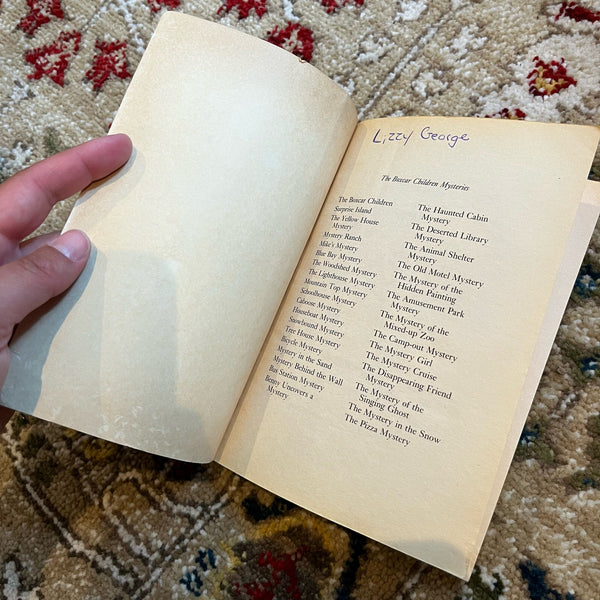 Lizzy George
The Boxcar Children Mysteries
The Boxcar Children
Surprise Island
The Yellow House
Mystery
Mystery Ranch
Mike's Mystery
Blue Bay Mystery
The Woodshed Mystery
The Lighthouse Mystery
Mountain Top Mystery
Schoolhouse Mystery
Caboose Mystery
Houseboat Mystery
Snowbound Mystery
Tree House Mystery
Bicycle Mystery
Mystery in the Sand
Mystery Behind the Wall
Bus Station Mystery
Benny Uncovers a
Mystery
The Haunted Cabin
Mystery
The Deserted Library
Mystery
The Animal Shelter
Mystery
The Old Motel Mystery
The Mystery of the
Hidden Painting
The Amusement Park
Mystery
The Mystery of the
Mixed-up Zoo
The Camp-out Mystery
The Mystery Girl
The Mystery Cruise
The Disappearing Friend
Mystery
The Mystery of the
Singing Ghost
The Mystery in the Snow
The Pizza Mystery